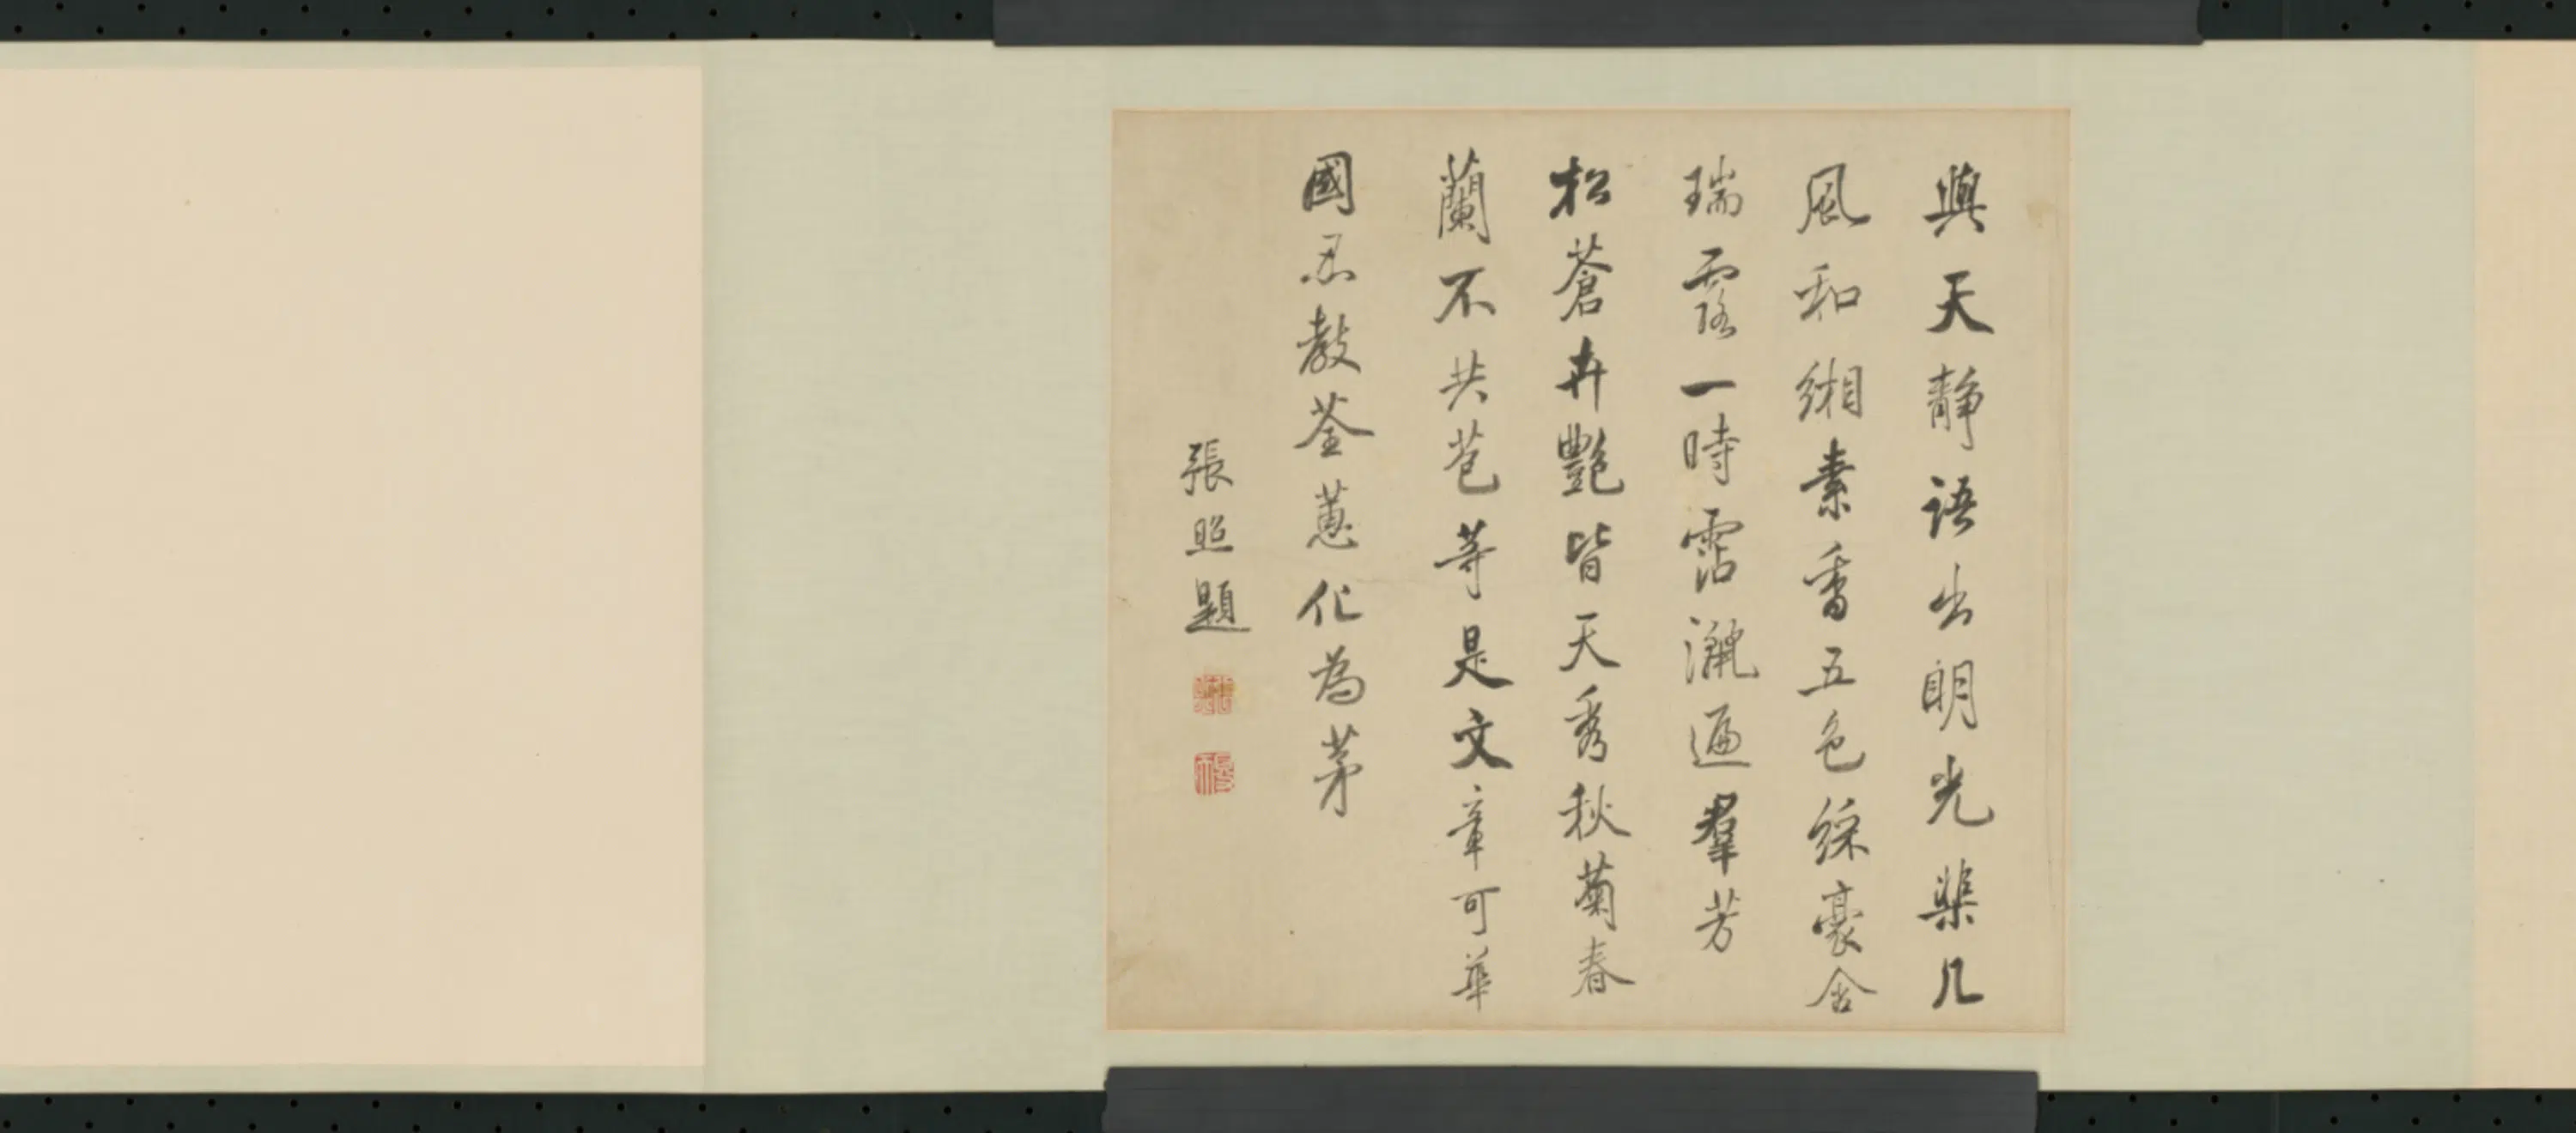 與天靜語出明光棐几
風和緗素香五色綵豪含
瑞露一時霑灑遍羣芳
松蒼卉艷皆天秀秋菊春
蘭不共苞等是文章可華
國忍教荃蕙化為茅
張照題